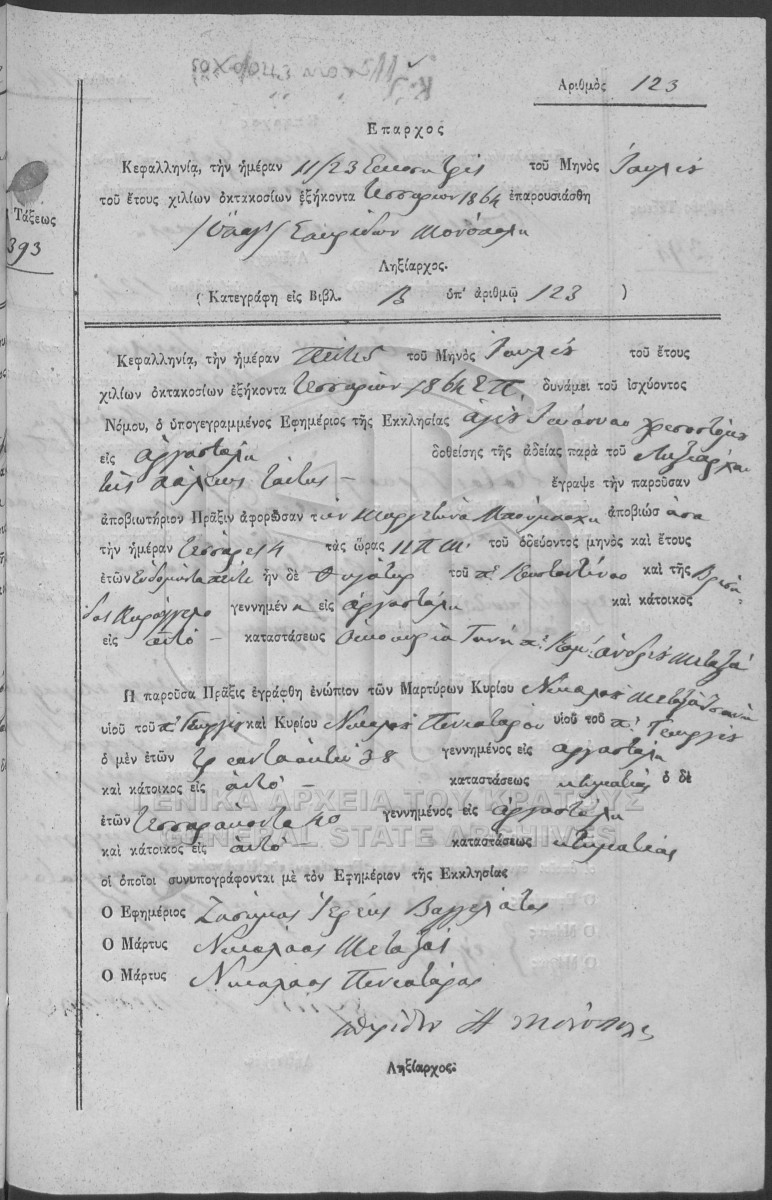 Αριθμὸς 123
Επαρχος
Τάξεως
393
Κεφαλληνίᾳ, τὴν ἡμέραν 11/23 Εικοσι τρις τοῦ Μηνὸς Ιουλίου
τοῦ ἔτους χιλίων ὀκτακοσίων ἑξήκοντα τεσσάρων 1864 ἐπαρουσιάσθη
Σπυρίδων Μονόπολη
Ληξίαρχος.
( Κατεγράφη εἰς Βιβλ. Β ὑπ' ἀριθμῷ 123 )
Κεφαλληνίᾳ, τὴν ἡμέραν πέντε τοῦ Μηνὸς Ιουλίου τοῦ ἔτους
χιλίων ὀκτακοσίων ἑξήκοντα τεσσάρων 1864 Ε.Π. δυνάμει τοῦ ἰσχύοντος
Νόμου, ὁ ὑπογεγραμμένος Ἐφημέριος τῆς Εκκλησίας ἁγίου Ιωάννου χρυσοστόμου
εἰς ἀργοστόλι δοθείσης τῆς ἀδείας παρὰ τοῦ Ληξιάρχου
της πόλεως ταύτης ἔγραψε τὴν παροῦσαν
ἀποβιωτήριον Πρᾶξιν ἀφορῶσαν την ἀποβιώσασα
τὴν ἡμέραν τέσσαρες 4 τὰς ὥρας 11 Π.Μ. τοῦ ὁδεύοντος μηνὸς καὶ ἔτους
ἐτῶν εβδομήντα πέντε ἦν δὲ θυγάτηρ τοῦ π. Κωνσταντίνου καὶ τῆς
γεννημένη εἰς ἀργοστόλι καὶ κάτοικος
εἰς αὐτό καταστάσεως οἰκοκυρία Γυνή π. ἀνδρέου Μεταξά
Η παροῦσα Πρᾶξις ἐγράφθη ἐνώπιον τῶν Μαρτύρων Κυρίου Νικολάου Μεταξά
υἱοῦ τοῦ π. Γεωργίου καὶ Κυρίου Νικολάου Πενιατάρου υἱοῦ τοῦ π. Γεωργίου
ὁ μὲν ἐτῶν τριάντα ὀκτώ 38 γεννημένος εἰς ἀργοστόλι
καὶ κάτοικος εἰς αὐτό καταστάσεως κτηματίας ὁ δὲ
ἐτῶν τεσσαράκοντα 40 γεννημένος εἰς ἀργοστόλι
καὶ κάτοικος εἰς αὐτό καταστάσεως κτηματίας
οἱ ὁποῖοι συνυπογράφονται μὲ τὸν Εφημέριον τῆς Εκκλησίας
Ο Εφημέριος Ζώσιμος Ιερεύς Βαγγελάτος
Ο Μάρτυς Νικόλαος Μεταξάς
Ο Μάρτυς Νικόλαος Πενιατάρος
Σπυρίδων Μονόπολης
Ληξίαρχος.
ΓΕΝΙΚΑ ΑΡΧΕΙΑ ΤΟΥ ΚΡΑΤΟΥΣ
GENERAL STATE ARCHIVES